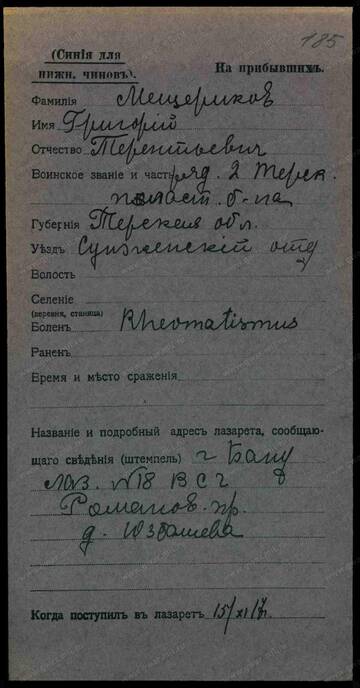 185
(Синія для
нижн. чиновъ).
На прибывшихъ.
Фамилія Мещериков
Имя Григорій
Отчество Терентьевич
Воинское званіе и часть ряд. 2 Терск.
пласт. б-на
Губернія Терская обл.
Уѣздъ Сунженскій отд
Волость
Селеніе
(деревня, станица)
Боленъ Rheomatismus
Раненъ
Время и мѣсто сраженія
Названіе и подробный адресъ лазарета, сообщаю-
щаго свѣдѣнія (штемпель) г Баку
Лаз. N18 В С Г
Романов. пр.
д. Юзбашева
Когда поступилъ въ лазаретъ 15/XI